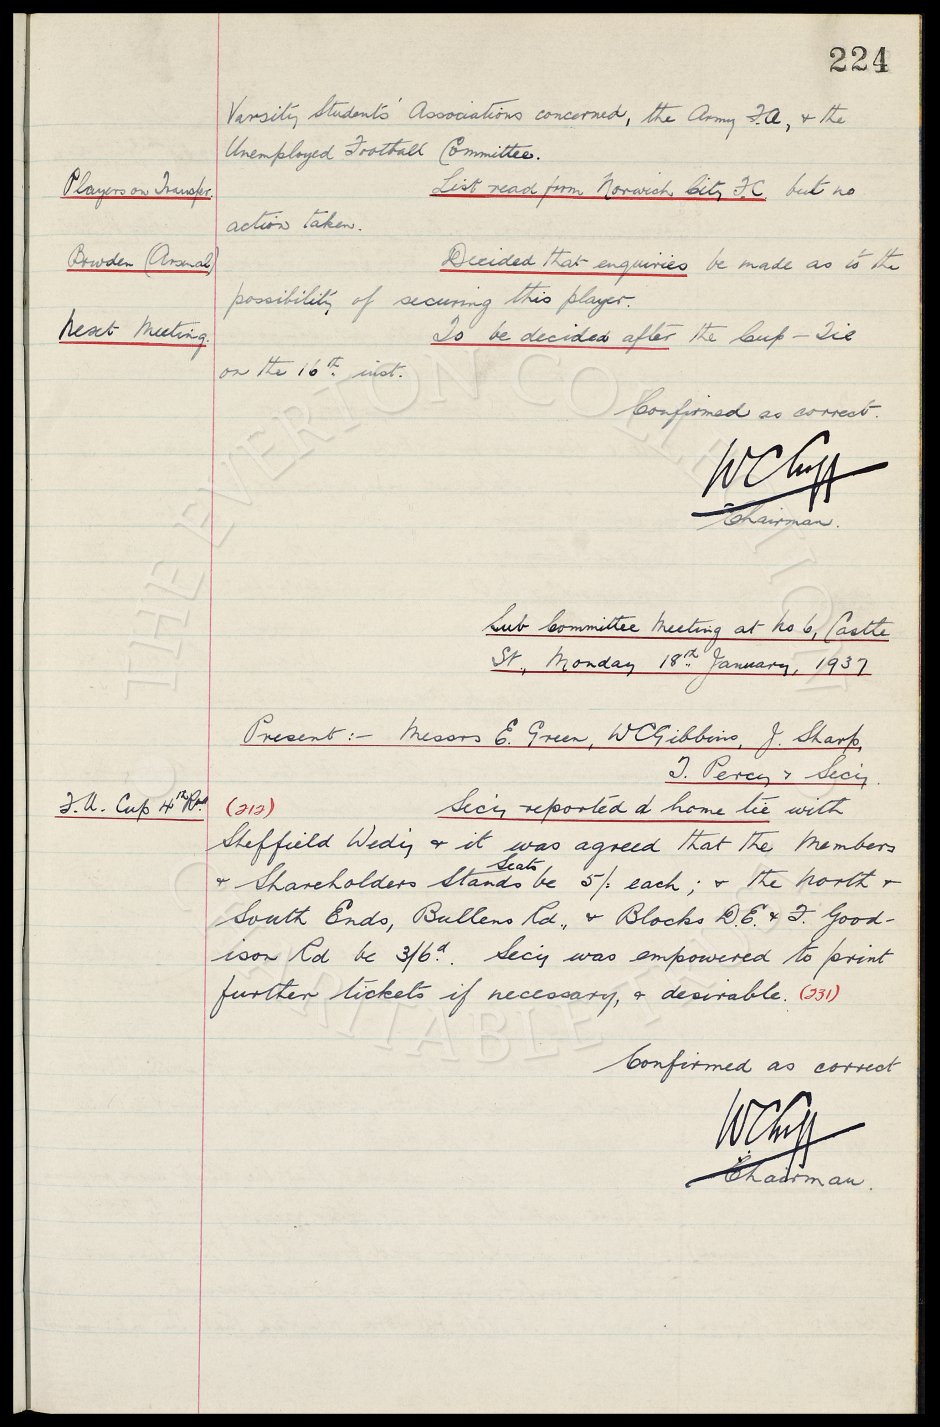 224
Varsity Students' Associations concerned, the Army F.A, & the
Unemployed Football Committee.
Players on Transfer. List read from Norwich City F.C. but no
action taken.
Bowden (Arsenal) Decided that enquiries be made as to the
possibility of securing this player.
Next Meeting. To be decided after the Cup-Tie
on the 16th. inst.
Confirmed as correct.
WCCuff
Chairman.
Sub Committee Meeting at No 6, Castle
St., Monday 18th. January, 1937
Present:- Messrs E. Green, WCGibbins, J. Sharp,
T. Percy & Secy.
F.A. Cup 4th Rd. (212) Secy reported a home tie with
Sheffield Wedy & it was agreed that the Members
& Shareholders Stands Seats be 5/- each; & the North &
South Ends, Bullens Rd., & Blocks D.E. & F. Good-
ison Rd be 3/6d. Secy was empowered to print
further tickets if necessary, & desirable. (231)
Confirmed as correct
WCCuff
Chairman.
THE EVERTON COLLECTION
CHARITABLE TRUST